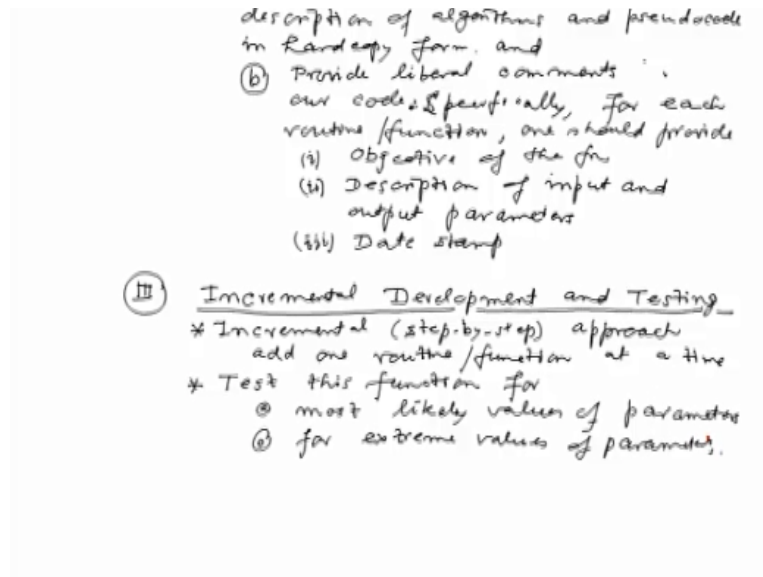 description of algorithms and pseudocode
in hardcopy form. and
(b) Provide liberal comments
our code. Specifically, for each
routine/function, one should provide
(i) Objective of the fn
(ii) Description of input and
output parameters
(iii) Date stamp
(III) Incremental Development and Testing
* Incremental (step-by-step) approach
add one routine/function at a time
* Test this function for
most likely values of parameters
for extreme values of parameters.